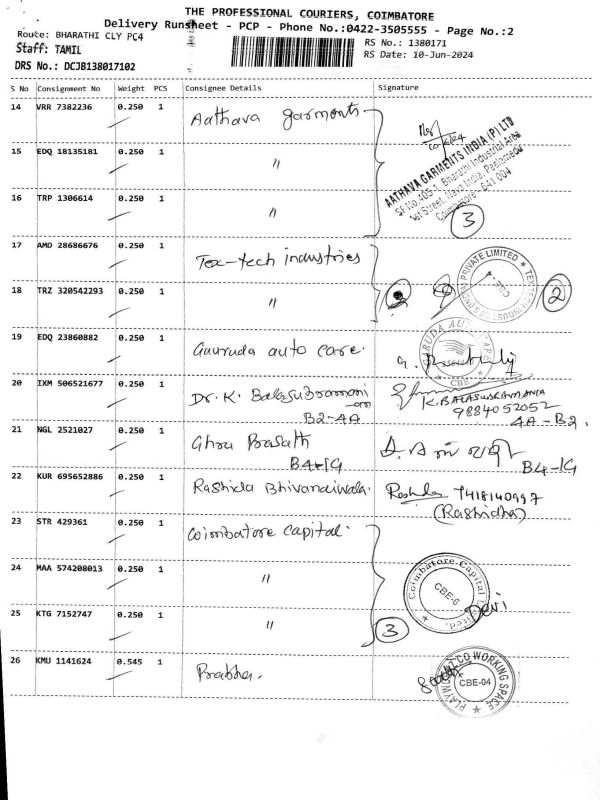 THE PROFESSIONAL COURIERS, COIMBATORE
Delivery Runsheet - PCP - Phone No.:0422-3505555 - Page No.:2
Route: BHARATHI CLY PC4
RS No.: 1380171
Staff: TAMIL
RS Date: 10-Jun-2024
DRS No.: DCJB138017102
S No Consignment No Weight PCS Consignee Details Signature
14 VRR 7382236 0.250 1 Aathava garments
10/6/24
AATHAVA GARMENTS INDIA (P) LTD
SF No.405-1, Bharathi Industrial Area
1st Street, Nava India, Peelamedu
Coimbatore - 641 004
15 EDQ 18135181 0.250 1 "
16 TRP 1306614 0.250 1 "
3
17 AMD 28686676 0.250 1 Tex-tech industries
PRIVATE LIMITED
18 TRZ 320542293 0.250 1 "
2
19 EDQ 23860882 0.250 1 Gauruda auto care.
GARUDA AUTO CARE
CBE
20 IXM 506521677 0.250 1 Dr. K. Balasubramani
an
B2-4A
K. BALASUBRAMANIA
9884052052
4A-B2.
21 NGL 2521027 0.250 1 Ghru Prasath
B4-1G
B4-1G
22 KUR 695652886 0.250 1 Rashida Bhivandiwala.
Rashida 7418140997
(Rashidha)
23 STR 429361 0.250 1 Coimbatore capital.
24 MAA 574208013 0.250 1 "
Coimbatore Capital Limited.
CBE-6
Devi
25 KTG 7152747 0.250 1 "
3
26 KMU 1141624 0.545 1 Prabha.
CO WORKING SPACE
CBE-04